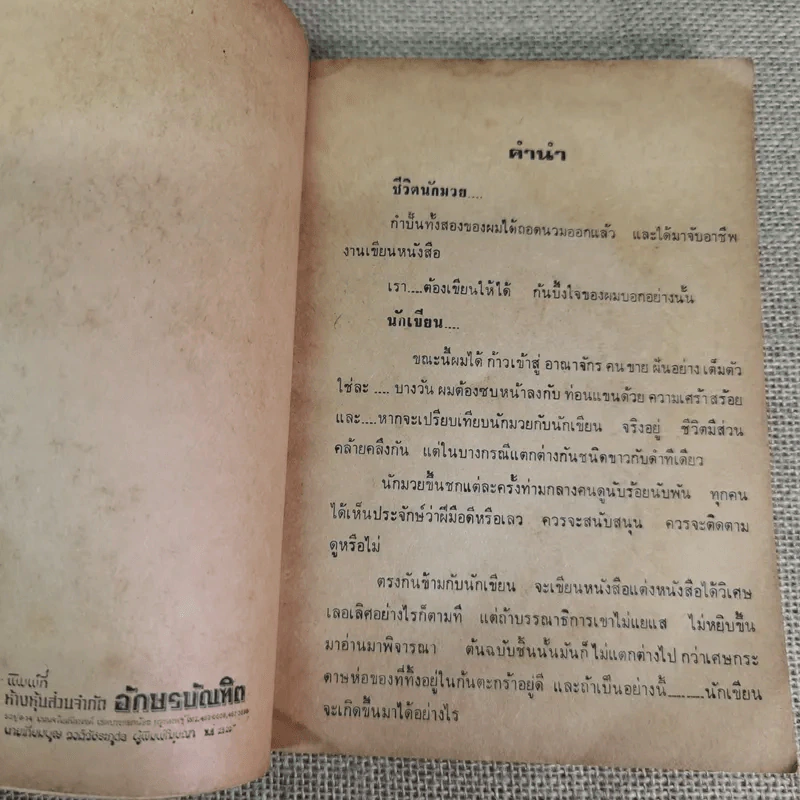 พิมพ์ที่
ห้างหุ้นส่วนจำกัด อักษรบัณฑิต
ผู้พิมพ์โฆษณา
คำนำ
ชีวิตนักมวย....
กำปั้นทั้งสองของผมได้ถอดนวมออกแล้ว และได้มาจับอาชีพ
งานเขียนหนังสือ
เรา....ต้องเขียนให้ได้ กันบึ้งใจของผมบอกอย่างนั้น
นักเขียน....
ขณะนี้ผมได้ ก้าวเข้าสู่ อาณาจักร คนขาย ฝันอย่าง เต็มตัว
ใช่ละ .... บางวัน ผมต้องซบหน้าลงกับ ท่อนแขนด้วย ความเศร้า สร้อย
และ....หากจะเปรียบเทียบนักมวยกับนักเขียน จริงอยู่ ชีวิตมีส่วน
คล้ายคลึงกัน แต่ในบางกรณีแตกต่างกันชนิดขาวกับดำทีเดียว
นักมวยขึ้นชกแต่ละครั้งท่ามกลางคนดูนับร้อยนับพัน ทุกคน
ได้เห็นประจักษ์ว่าฝีมือดีหรือเลว ควรจะสนับสนุน ควรจะติดตาม
ดูหรือไม่
ตรงกันข้ามกับนักเขียน จะเขียนหนังสือแต่งหนังสือได้วิเศษ
เลอเลิศอย่างไรก็ตามที แต่ถ้าบรรณาธิการเขาไม่แยแส ไม่หยิบขึ้น
มาอ่านมาพิจารณา ต้นฉบับชิ้นนั้นมันก็ ไม่แตกต่างไป กว่าเศษกระ
ดาษห่อของที่ทิ้งอยู่ในก้นตะกร้าอยู่ดี และถ้าเป็นอย่างนี้..........นักเขียน
จะเกิดขึ้นมาได้อย่างไร